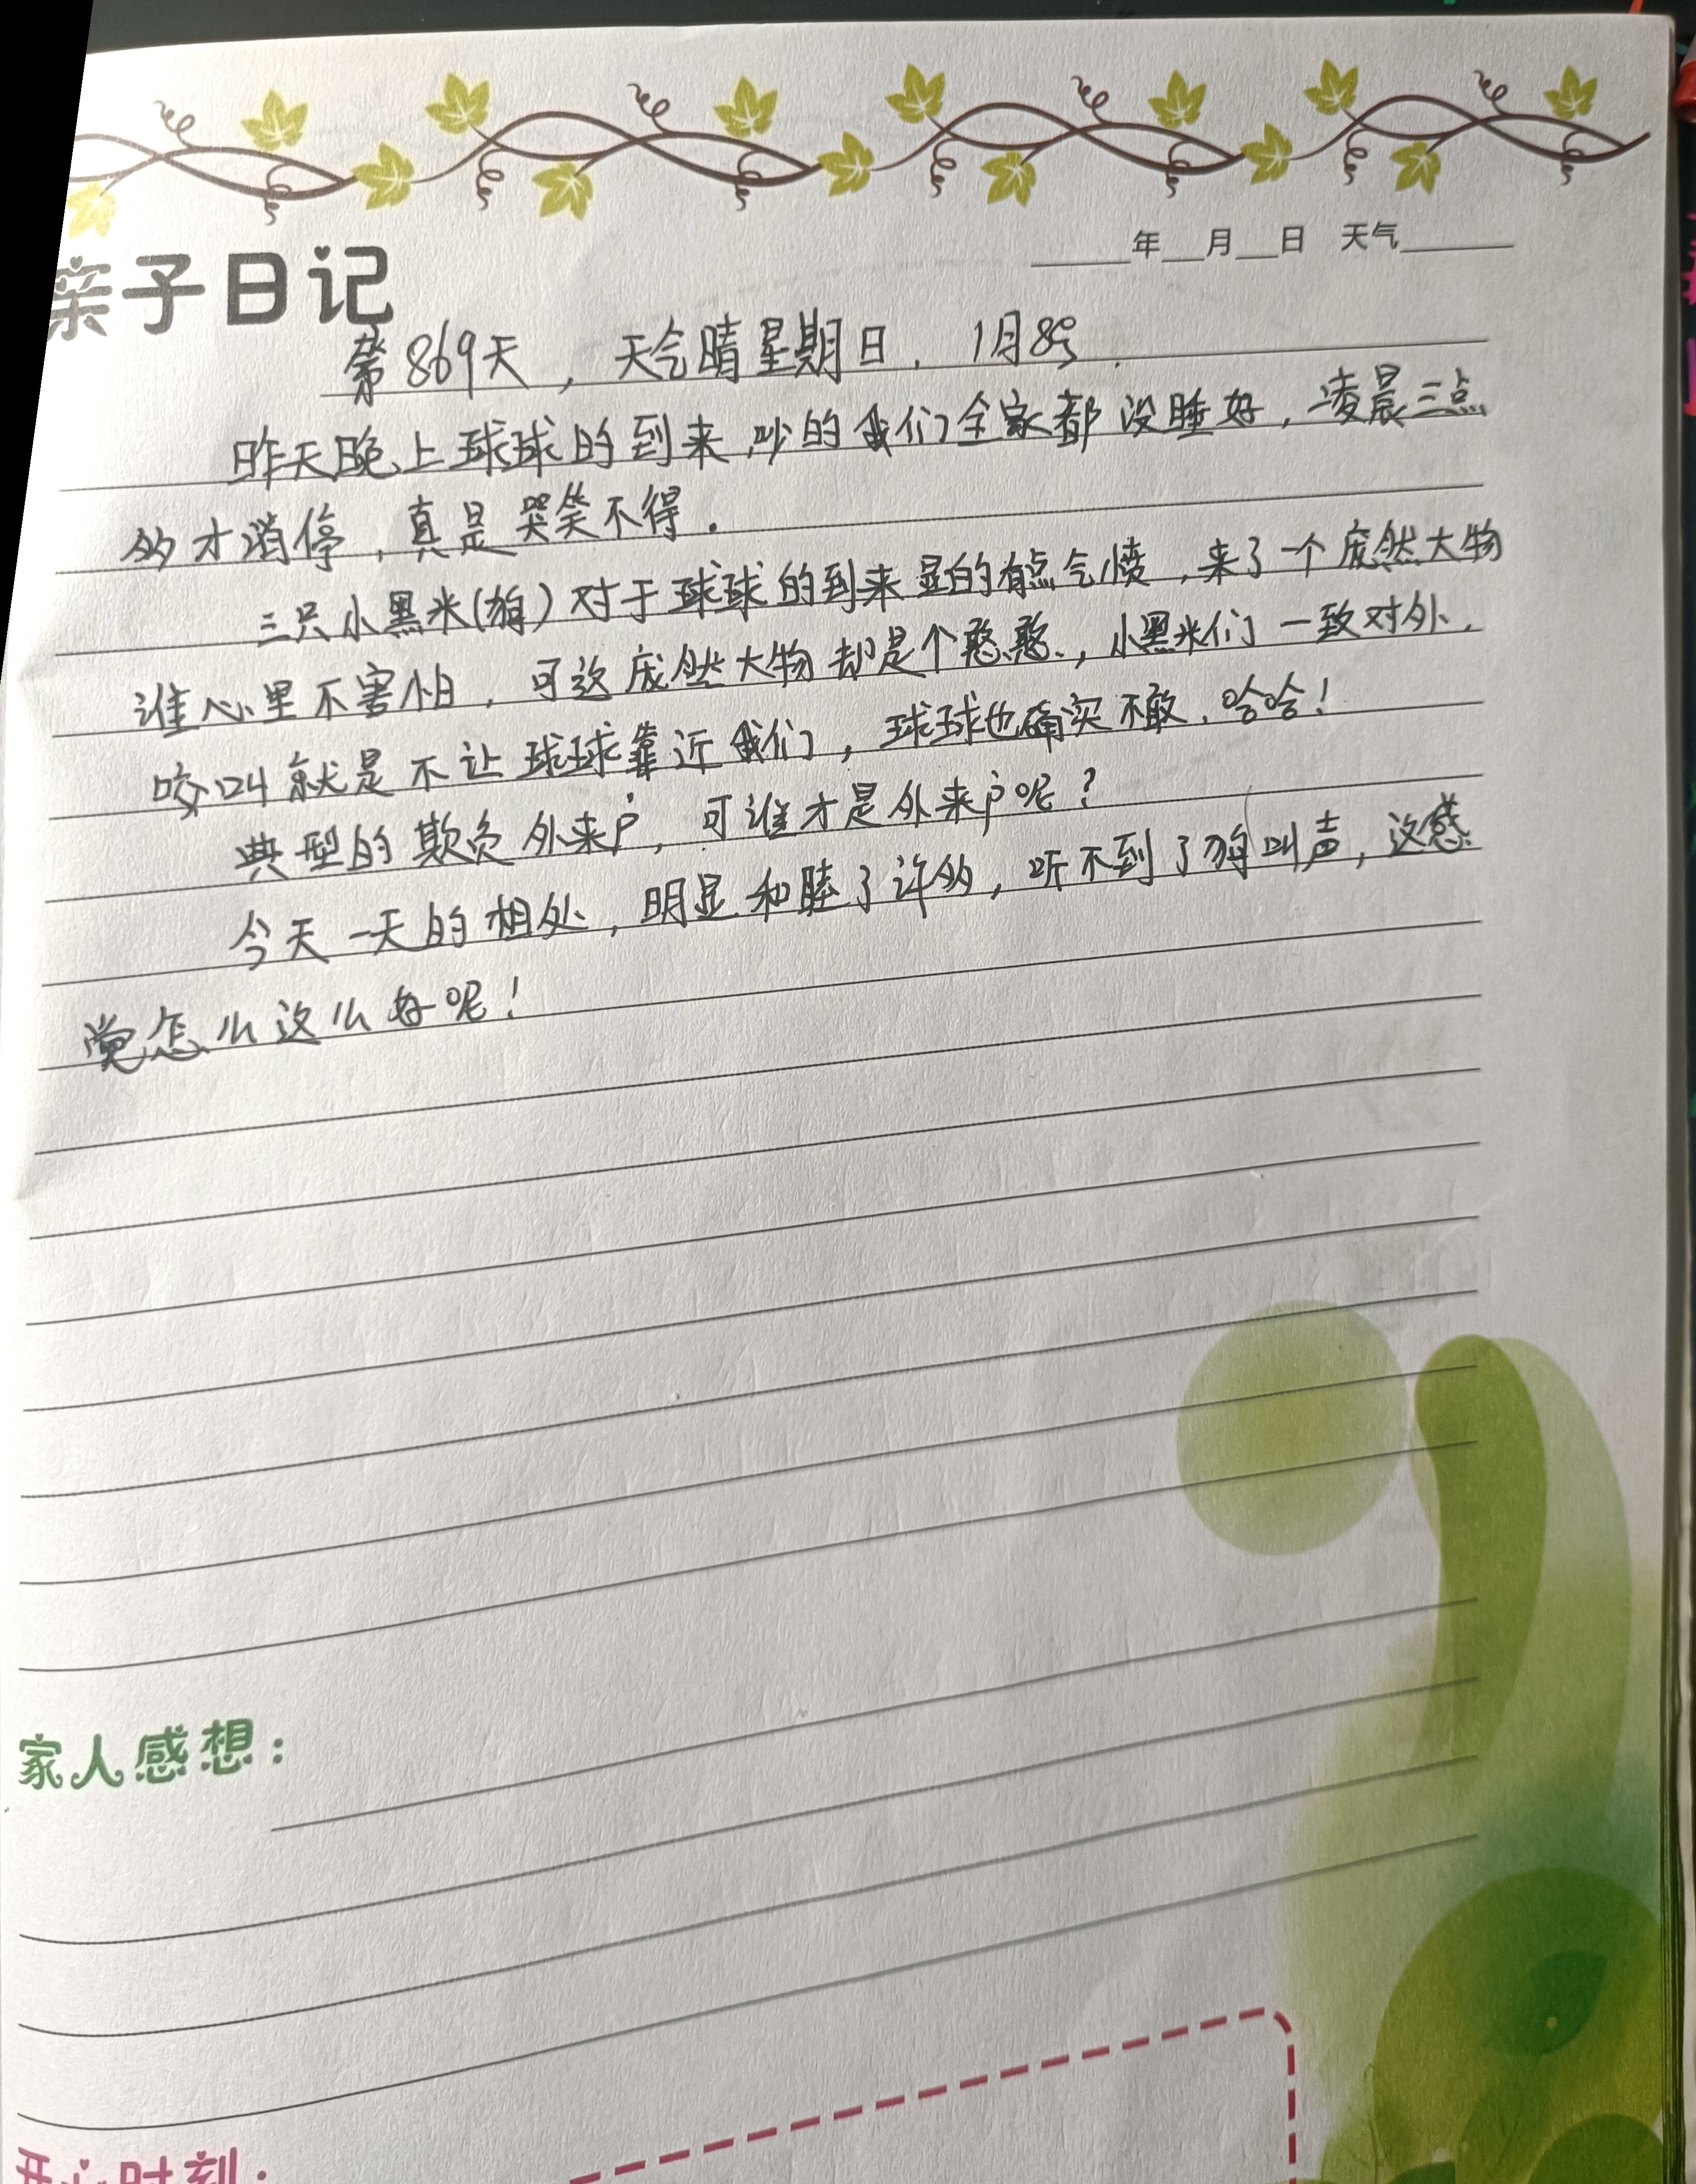 亲子日记
年 月 日 天气
第869天，天气晴星期日，1月8号.
昨天晚上球球的到来，吵的我们全家都没睡好，凌晨三点
多才消停，真是哭笑不得.
三只小黑米(狗)对于球球的到来显的有点气愤，来了一个庞然大物
谁心里不害怕，可这庞然大物却是个憨憨，小黑米们一致对外，
咬叫就是不让球球靠近我们，球球也确实不敢，哈哈！
典型的欺负外来户，可谁才是外来户呢？
今天一天的相处，明显和睦了许多，听不到了狗叫声，这感
觉怎么这么好呢！
家人感想：
开心时刻：